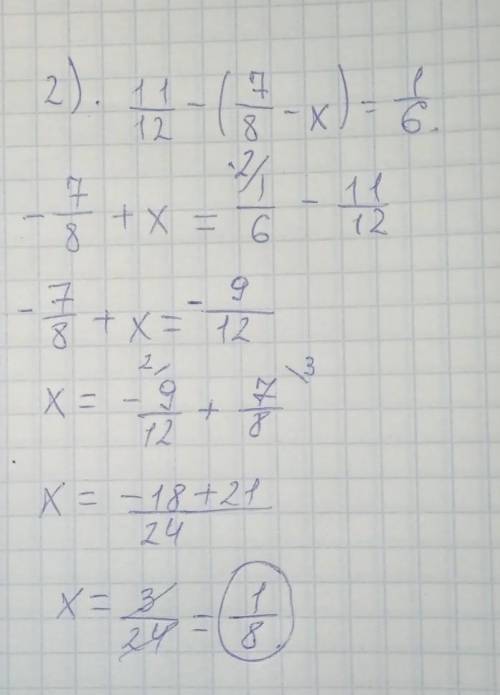 2). 11/12 - (7/8 - x) = 1/6.
- 7/8 + x = ·2/ 1/6 - 11/12
- 7/8 + x = - 9/12
x = - 2/ 9/12 + 7/8 \3
x = (-18+21)/24
x = 3/24 = 1/8